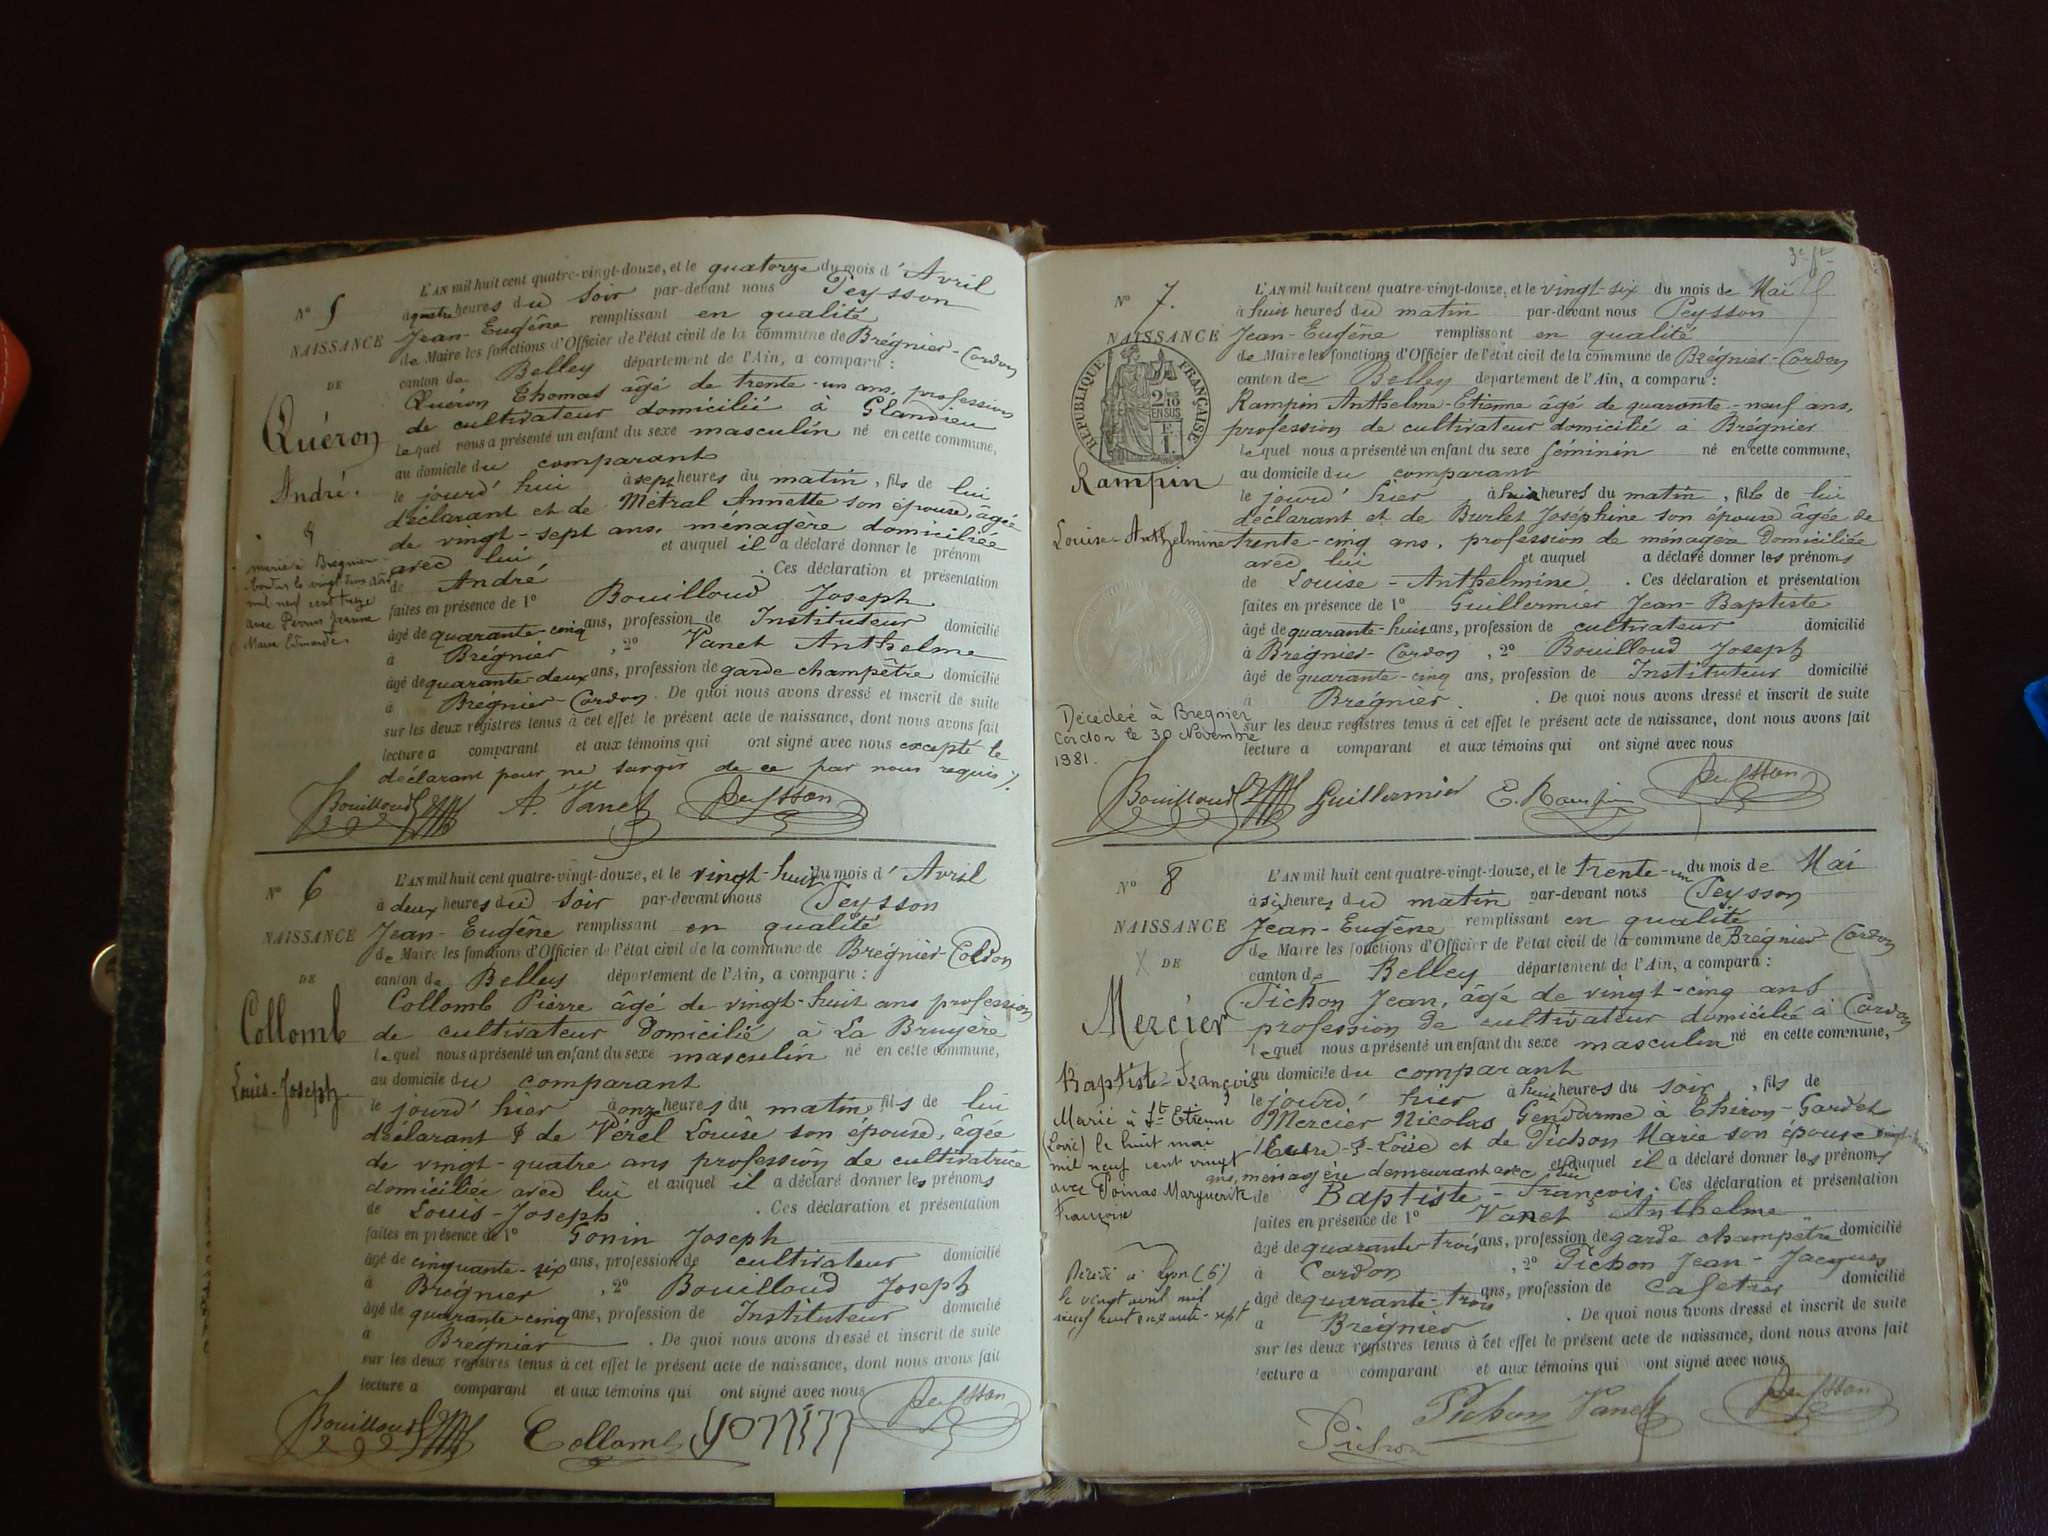 L'AN mil huit cent quatre-vingt-douze, et le quatorze du mois d'Avril
N° 5 à quatre heures du Soir par-devant nous Peysson
Jean-Eugêne remplissant en qualité
NAISSANCE de Maire les fonctions d'Officier de l'état civil de la commune de Brégnier-Cordon
DE canton de Belley département de l'Ain, a comparu :
Quéron Thomas âgé de trente-un ans, profession
Quéron de cultivateur domicilié à Glandieu
Lequel nous a présenté un enfant du sexe masculin né en cette commune,
au domicile du comparant
André. le jourd'hui à sept heures du matin, fils de lui
déclarant et de Métral Annette son épouse, âgée
de vingt-sept ans, ménagère domiciliée
avec lui et auquel il a déclaré donner le prénom
de André . Ces déclaration et présentation
marié à Bregnier
Cordon le vingt deux
mil neuf cent treize
avec Jeanne
Marie
faites en présence de 1° Bouilloud Joseph
âgé de quarante-cinq ans, profession de Instituteur domicilié
à Brégnier , 2° Vanet Anthelme
âgé de quarante-deux ans, profession de garde champêtre domicilié
à Brégnier-Cordon . De quoi nous avons dressé et inscrit de suite
sur les deux registres tenus à cet effet le présent acte de naissance, dont nous avons fait
lecture a comparant et aux témoins qui ont signé avec nous excepté le
déclarant pour ne savoir de ce par nous requis /.
Bouilloud A. Vanet Peysson
L'AN mil huit cent quatre-vingt-douze, et le vingt-huit du mois d'Avril
N° 6 à deux heures du Soir par-devant nous Peysson
NAISSANCE Jean-Eugêne remplissant en qualité
de Maire les fonctions d'Officier de l'état civil de la commune de Brégnier-Cordon
DE canton de Belley département de l'Ain, a comparu :
Collomb Pierre âgé de vingt-huit ans profession
Collomb de cultivateur domicilié à La Bruyère
lequel nous a présenté un enfant du sexe masculin né en cette commune,
Louis-Joseph au domicile du comparant
le jourd'hier à onze heures du matin, fils de lui
déclarant & de Vérel Louise son épouse, âgée
de vingt-quatre ans profession de cultivatrice
domiciliée avec lui et auquel il a déclaré donner les prénoms
de Louis-Joseph . Ces déclaration et présentation
faites en présence de 1° Gonin Joseph
âgé de cinquante-six ans, profession de cultivateur domicilié
à Brégnier , 2° Bouilloud Joseph
âgé de quarante-cinq ans, profession de Instituteur domicilié
a Brégnier . De quoi nous avons dressé et inscrit de suite
sur les deux registres tenus à cet effet le présent acte de naissance, dont nous avons fait
lecture a comparant et aux témoins qui ont signé avec nous
Bouilloud Collomb gonin Peysson
L'AN mil huit cent quatre-vingt-douze, et le vingt-six du mois de Mai
N° 7. à huit heures du matin par-devant nous Peysson
NAISSANCE Jean-Eugêne remplissant en qualité
de Maire les fonctions d'Officier de l'état civil de la commune de Brégnier-Cordon
canton de Belley département de l'Ain, a comparu :
RÉPUBLIQUE FRANÇAISE
2/10 EN SUS
Rampin Anthelme-Etienne âgé de quarante-neuf ans,
profession de cultivateur domicilié à Brégnier
lequel nous a présenté un enfant du sexe féminin né en cette commune,
Rampin au domicile du comparant
le jourd'hier à huit heures du matin, fille de lui
déclarant et de Burlet Joséphine son épouse âgée de
Louise-Anthelmine trente-cinq ans, profession de ménagère domiciliée
avec lui et auquel a déclaré donner les prénoms
de Louise-Anthelmine . Ces déclaration et présentation
faites en présence de 1° Guillermier Jean-Baptiste
âgé de quarante-huit ans, profession de cultivateur domicilié
à Brégnier-Cordon , 2° Bouilloud Joseph
âgé de quarante-cinq ans, profession de Instituteur domicilié
à Brégnier . De quoi nous avons dressé et inscrit de suite
Décédée à Bregnier
Cordon le 30 Novembre
1981.
sur les deux registres tenus à cet effet le présent acte de naissance, dont nous avons fait
lecture a comparant et aux témoins qui ont signé avec nous
Bouilloud Guillermier E. Rampin Peysson
L'AN mil huit cent quatre-vingt-douze, et le trente-un du mois de Mai
N° 8 à six heures du matin par-devant nous Peysson
NAISSANCE Jean-Eugêne remplissant en qualité
de Maire les fonctions d'Officier de l'état civil de la commune de Brégnier-Cordon
DE canton de Belley département de l'Ain, a comparu :
Pichon Jean, âgé de vingt-cinq ans
Mercier profession de cultivateur domicilié à Cordon
lequel nous a présenté un enfant du sexe masculin né en cette commune,
Baptiste-François au domicile du comparant
le jourd'hier à huit heures du soir, fils de
Mercier Nicolas Gendarme à Thiron-Gardet
Eure-&-Loire et de Pichon Marie son épouse vingt-
ans, ménagère demeurant avec lui et auquel il a déclaré donner les prénoms
de Baptiste-François . Ces déclaration et présentation
Marié à St Etienne
(Loire) le huit mai
mil neuf cent vingt
avec Pomas Marguerite
Françoise
faites en présence de 1° Vanet Anthelme
âgé de quarante-trois ans, profession de garde champêtre domicilié
à Cordon , 2° Pichon Jean-Jacques
âgé de quarante-trois ans, profession de Cafetier domicilié
a Brégnier . De quoi nous avons dressé et inscrit de suite
Décédé à Lyon (6°)
le vingt avril mil
neuf cent soixante-sept
sur les deux registres tenus à cet effet le présent acte de naissance, dont nous avons fait
lecture a comparant et aux témoins qui ont signé avec nous
Pichon Pichon Vanet Peysson